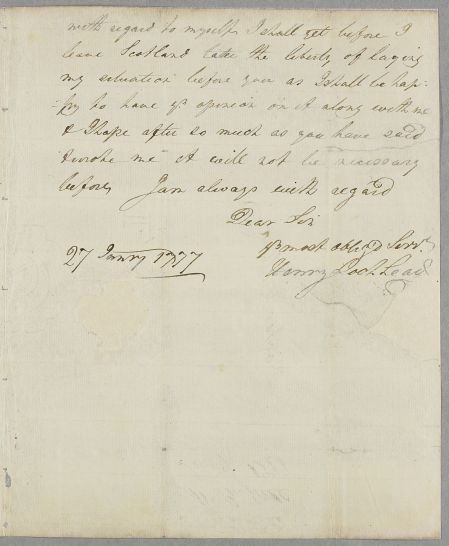 with regard to myself I shall yet before I
leave Scotland take the liberty of laying
my situation before you as I shall be hap-
-py to have yr opinion on it along with me
& I hope after so much as you have said
& wrote me it will not be necessary
before, I am always with regard
Dear Sir
yr most oblig'd Servt
Henry Lochhead
27 Janry 1787